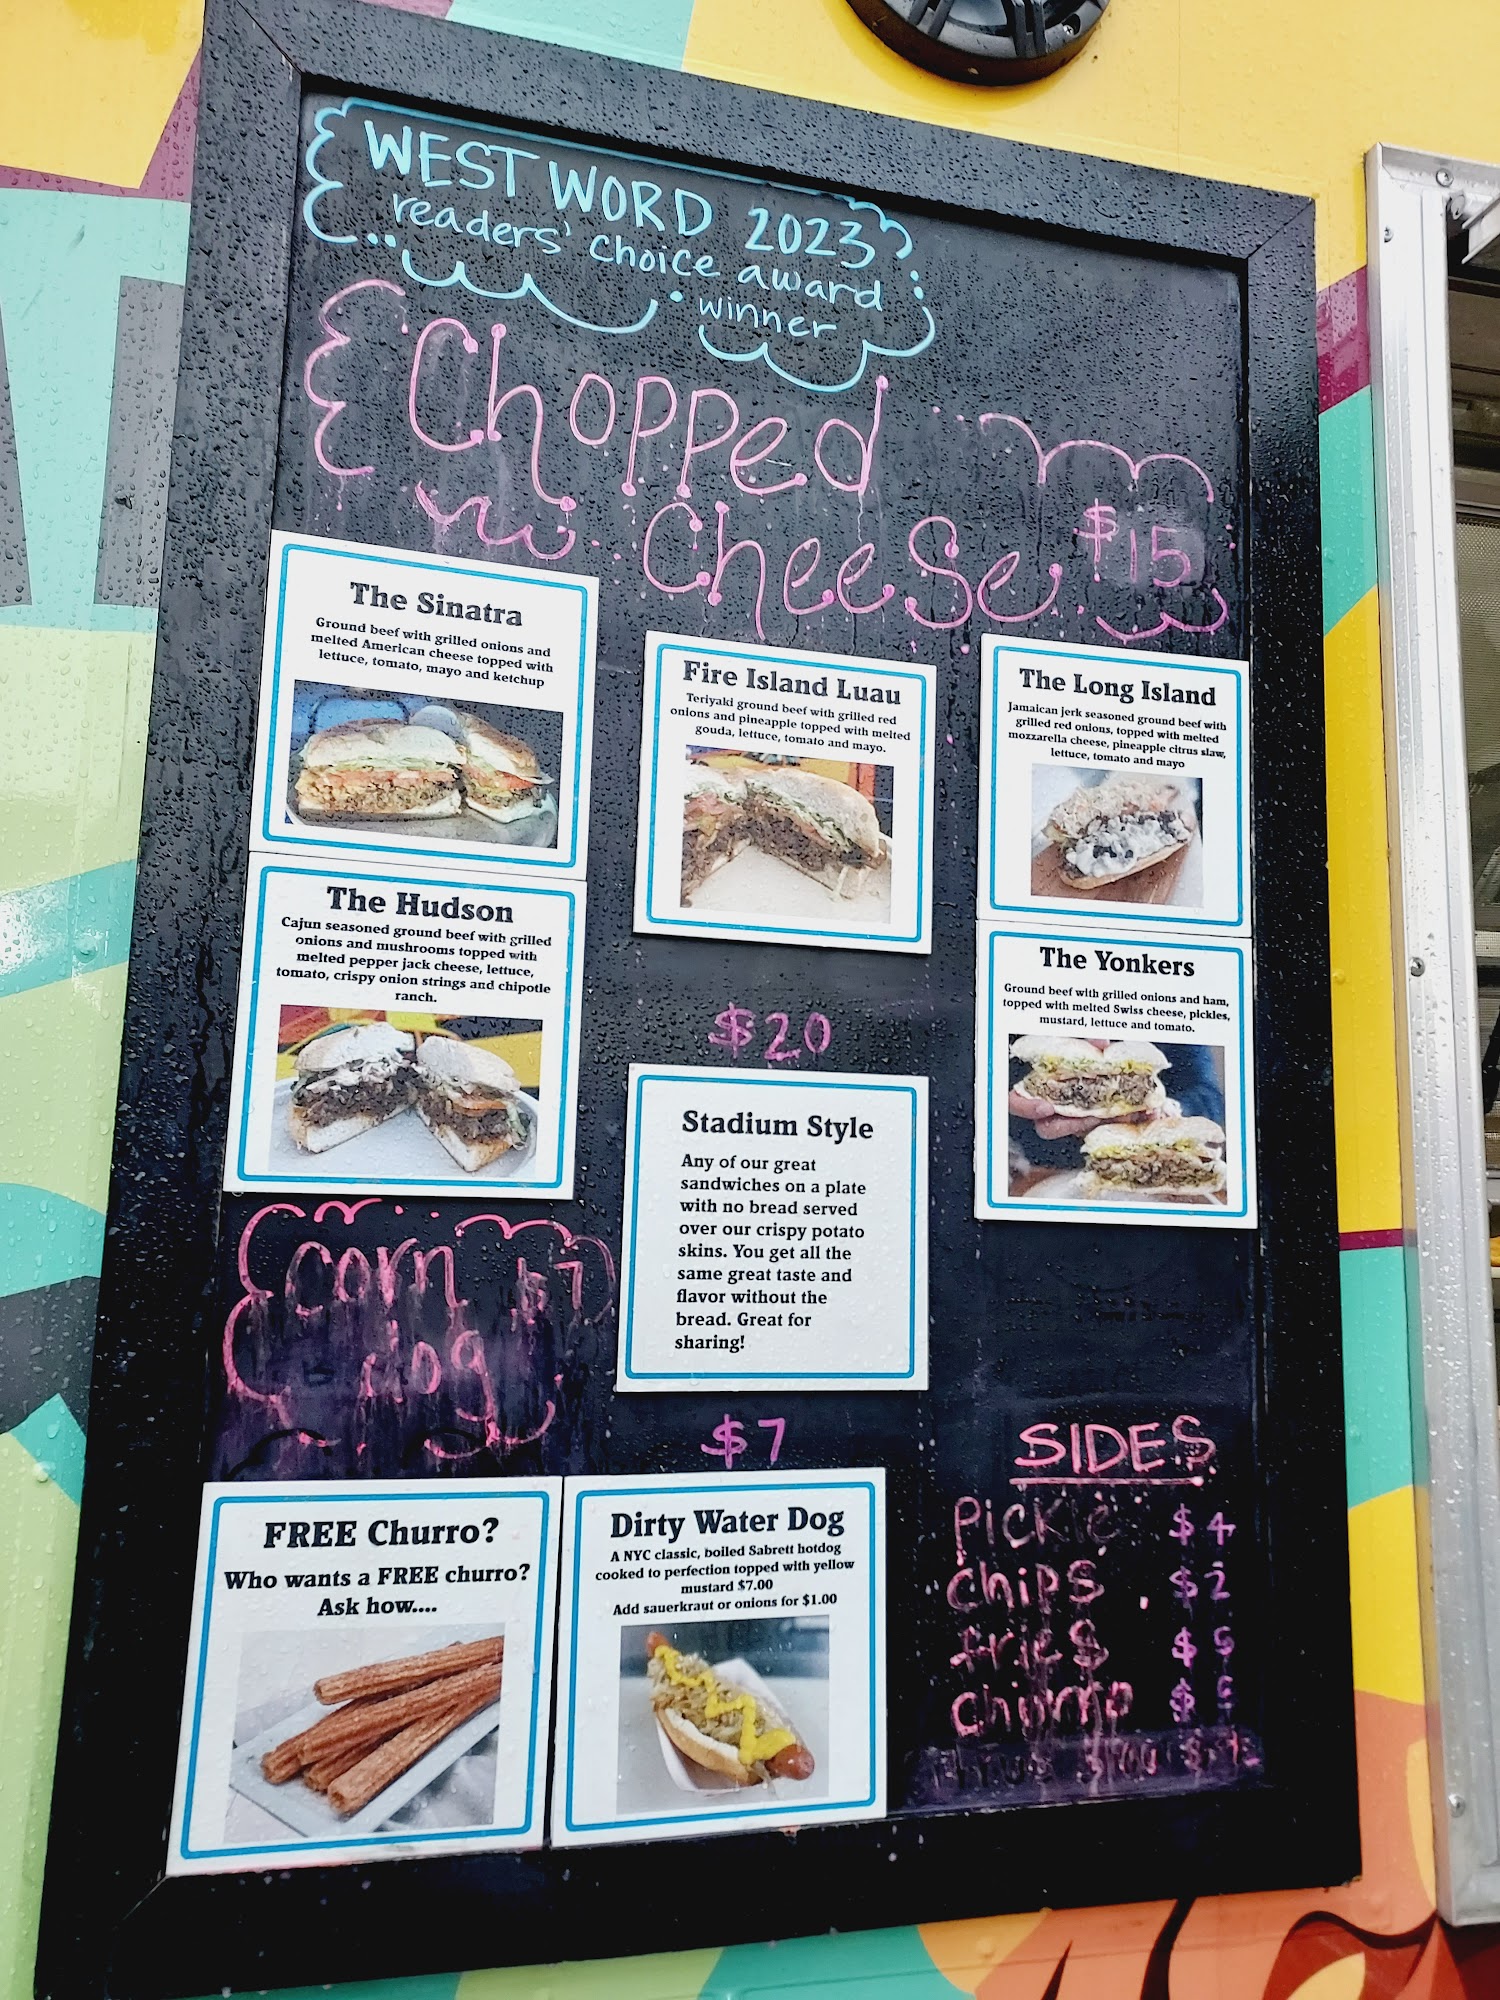 WEST WORD 2023
readers' choice award
winner
Chopped
Cheese $15
The Sinatra
Ground beef with grilled onions and
melted American cheese topped with
lettuce, tomato, mayo and ketchup
Fire Island Luau
Teriyaki ground beef with grilled red
onions and pineapple topped with melted
gouda, lettuce, tomato and mayo.
The Long Island
Jamaican jerk seasoned ground beef with
grilled red onions, topped with melted
mozzarella cheese, pineapple citrus slaw,
lettuce, tomato and mayo
The Hudson
Cajun seasoned ground beef with grilled
onions and mushrooms topped with
melted pepper jack cheese, lettuce,
tomato, crispy onion strings and chipotle
ranch.
The Yonkers
Ground beef with grilled onions and ham,
topped with melted Swiss cheese, pickles,
mustard, lettuce and tomato.
$20
Stadium Style
Any of our great
sandwiches on a plate
with no bread served
over our crispy potato
skins. You get all the
same great taste and
flavor without the
bread. Great for
sharing!
corn $7
dog
$7
FREE Churro?
Who wants a FREE churro?
Ask how....
Dirty Water Dog
A NYC classic, boiled Sabrett hotdog
cooked to perfection topped with yellow
mustard $7.00
Add sauerkraut or onions for $1.00
SIDES
Pickle $4
chips $2
fries $5
churro $